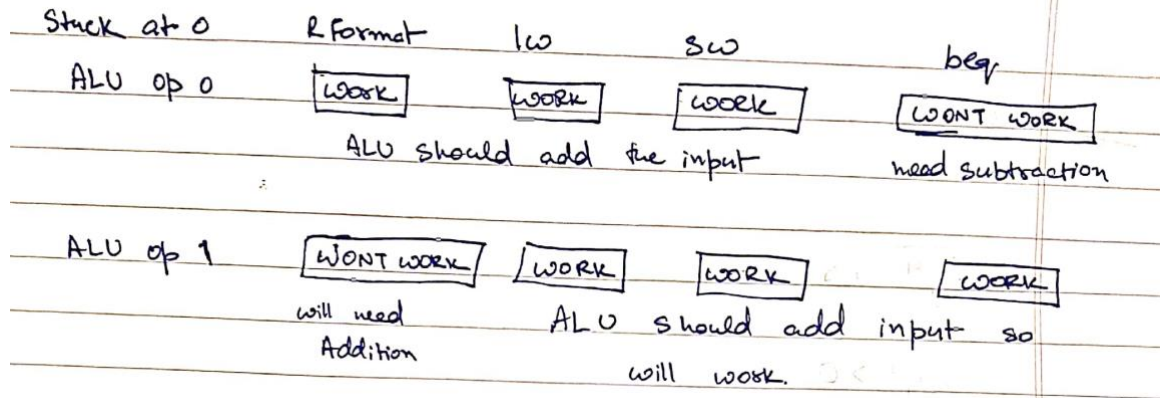 Stuck at 0 R Format lw sw beq
ALU op 0 WORK WORK WORK WONT WORK
ALU should add the input need subtraction
ALU op 1 WONT WORK WORK WORK WORK
will need ALU should add input so
Addition will work.